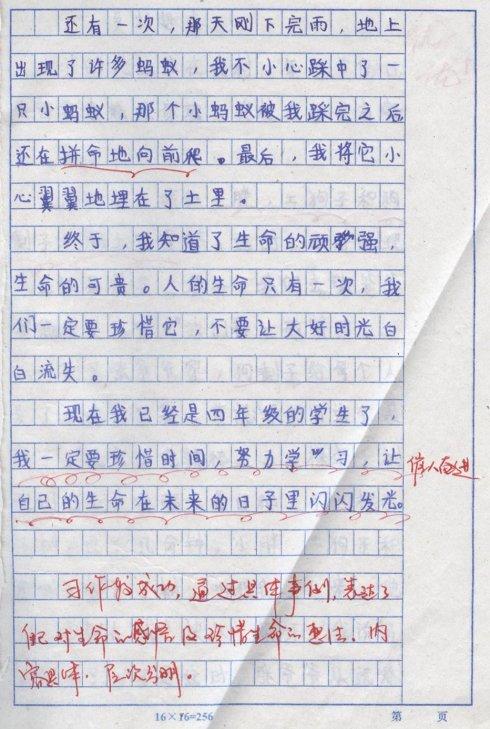 还有一次，那天刚下完雨，地上
出现了许多蚂蚁，我不小心踩中了一
只小蚂蚁，那个小蚂蚁被我踩完之后
还在拼命地向前爬。最后，我将它小
心翼翼地埋在了土里。
终于，我知道了生命的顽强，
生命的可贵。人的生命只有一次，我
们一定要珍惜它，不要让大好时光白
白流失。
现在我已经是四年级的学生了，
我一定要珍惜时间，努力学习，让
自己的生命在未来的日子里闪闪发光。
催人奋进
习作较成功，通过具体事例，表达了
自己对生命的感悟及珍惜生命的想法。内
容具体，层次分明。
16×16=256
第 页